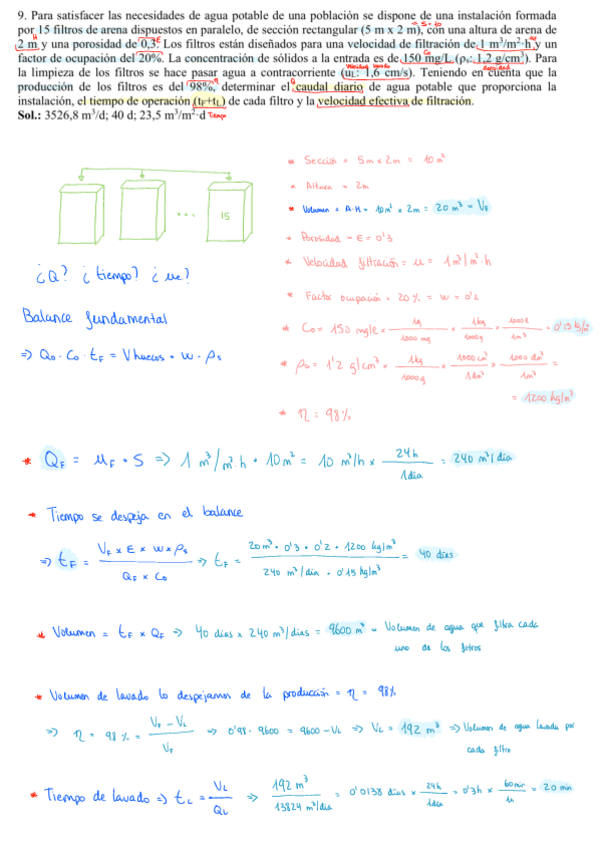 9. Para satisfacer las necesidades de agua potable de una población se dispone de una instalación formada
por 15 filtros de arena dispuestos en paralelo, de sección rectangular (5 m x 2 m), con una altura de arena de
2 m y una porosidad de 0,3. Los filtros están diseñados para una velocidad de filtración de 1 m³/m²·h y un
factor de ocupación del 20%. La concentración de sólidos a la entrada es de 150 mg/L (ρs: 1,2 g/cm³). Para
la limpieza de los filtros se hace pasar agua a contracorriente (uL: 1,6 cm/s). Teniendo en cuenta que la
producción de los filtros es del 98%, determinar el caudal diario de agua potable que proporciona la
instalación, el tiempo de operación (tF+tL) de cada filtro y la velocidad efectiva de filtración.
Sol.: 3526,8 m³/d; 40 d; 23,5 m³/m²·d Tiempo
* Sección = 5m x 2m = 10m²
* Altura = 2m
* Volumen = A·H = 10m² x 2m = 20m³ = VF
* Porosidad = E = 0'3
* Velocidad filtración = u = 1m³/m²·h
* Factor ocupación = 20% = w = 0'2
* Co = 150 mg/e x 1g/1000 mg x 1kg/1000g x 1000ℓ/1m³ = 0'15 kg/m³
* ρs = 1'2 g/cm³ x 1kg/1000g x 1000 cm³/1dm³ x 1000 dm³/1m³ =
= 1200 kg/m³
* η = 98%
15
¿Q? ¿tiempo? ¿ue?
Balance fundamental
=> Qo · Co · tF = Vhuecos · w · ρs
* QF = uF · S => 1 m³/m²·h · 10m² = 10 m³/h x 24h/1dia = 240 m³/dia
* Tiempo se despeja en el balance
=> tF = VF x E x w x ρs / QF x Co => tF = 20m³ · 0'3 · 0'2 · 1200 kg/m³ / 240 m³/dia · 0'15 kg/m³ = 40 dias
* Volumen = tF x QF => 40 dias x 240 m³/dias = 9600 m³ = Volumen de agua que filtra cada
uno de los filtros
* Volumen de lavado lo despejamos de la producción = η = 98%
=> η = 98% = VF - VL / VF => 0'98 · 9600 = 9600 - VL => VL = 192 m³ => Volumen de agua lavada por
cada filtro
* Tiempo de lavado => tL = VL/QL => 192 m³ / 13824 m³/dia = 0'0138 dias x 24h/1dia = 0'3h x 60min/1h = 20 min